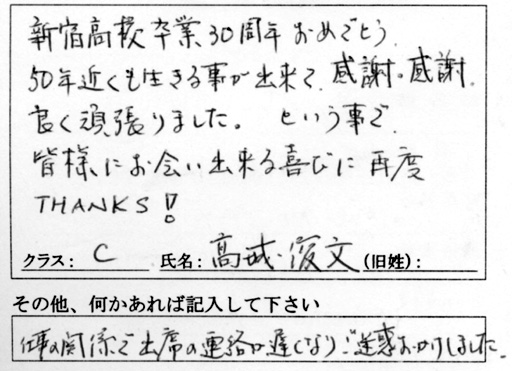 新宿高校卒業30周年おめでとう.
50年近くも生きる事が出来て、感謝。感謝.
良く頑張りました。 という事で.
皆様にお会い出来る喜びに再度
THANKS!
クラス: C 氏名: 高城 俊文 (旧姓):
その他、何かあれば記入して下さい
仕事の関係で出席の連絡が遅くなりご迷惑おかけしました.